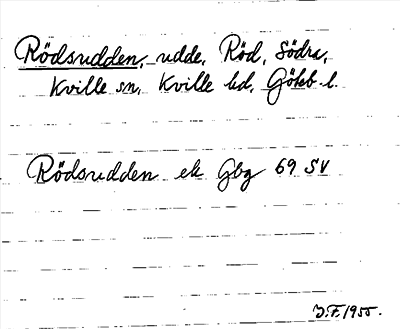 Rödsudden, udde, Röd, Södra,
Kville sn, Kville hd, Göteb. l.
Rödsudden ek Gbg 69 SV
J.F. 1955.